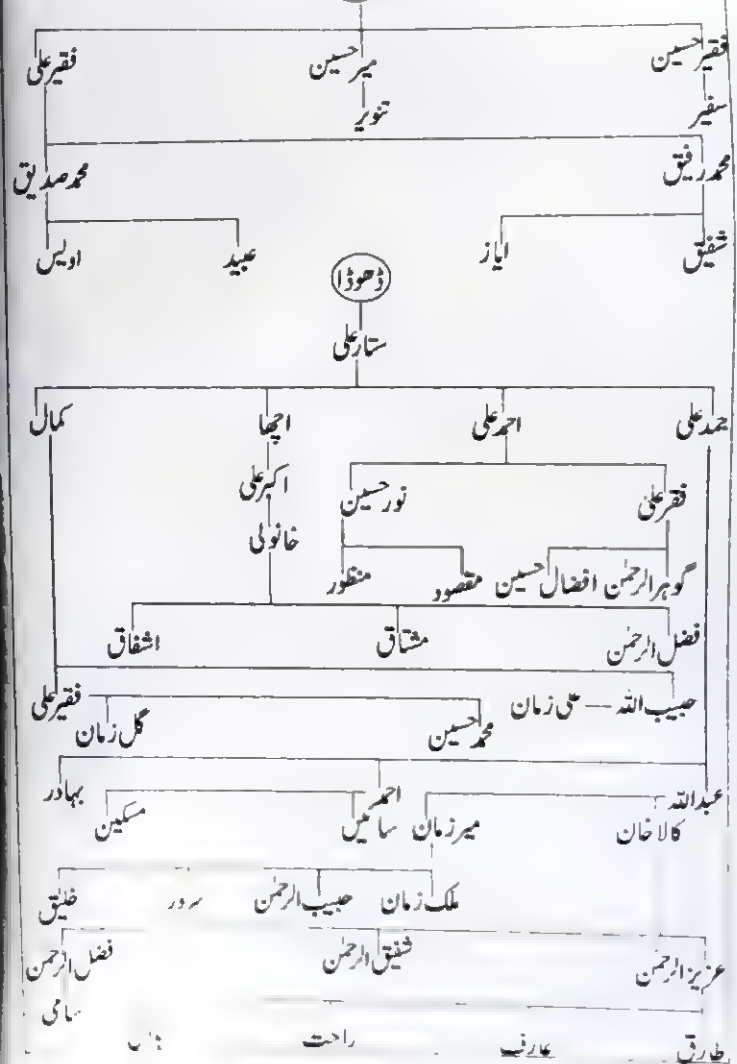 فقیر حسین میر حسین فقیر علی
سفیر تنویر
محمد رفیق محمد صدیق
شفیق ایاز عبید اویس
ڈھوڈا
ستار علی
حمد علی احمد علی اچھا کمال
فقر علی نور حسین اکبر علی
خانولی
گوہر الرحمٰن افضال حسین مقصود منظور
فضل الرحمٰن مشتاق اشفاق
حبیب اللہ — علی زمان فقیر علی
محمد حسین گل زمان
عبداللہ احمد بہادر
کالا خان میر زمان سائیں مسکین
ملک زمان حبیب الرحمٰن خلیق
عزیز الرحمٰن شفیق الرحمٰن فضل الرحمٰن
سامی
طارق عارف راحت